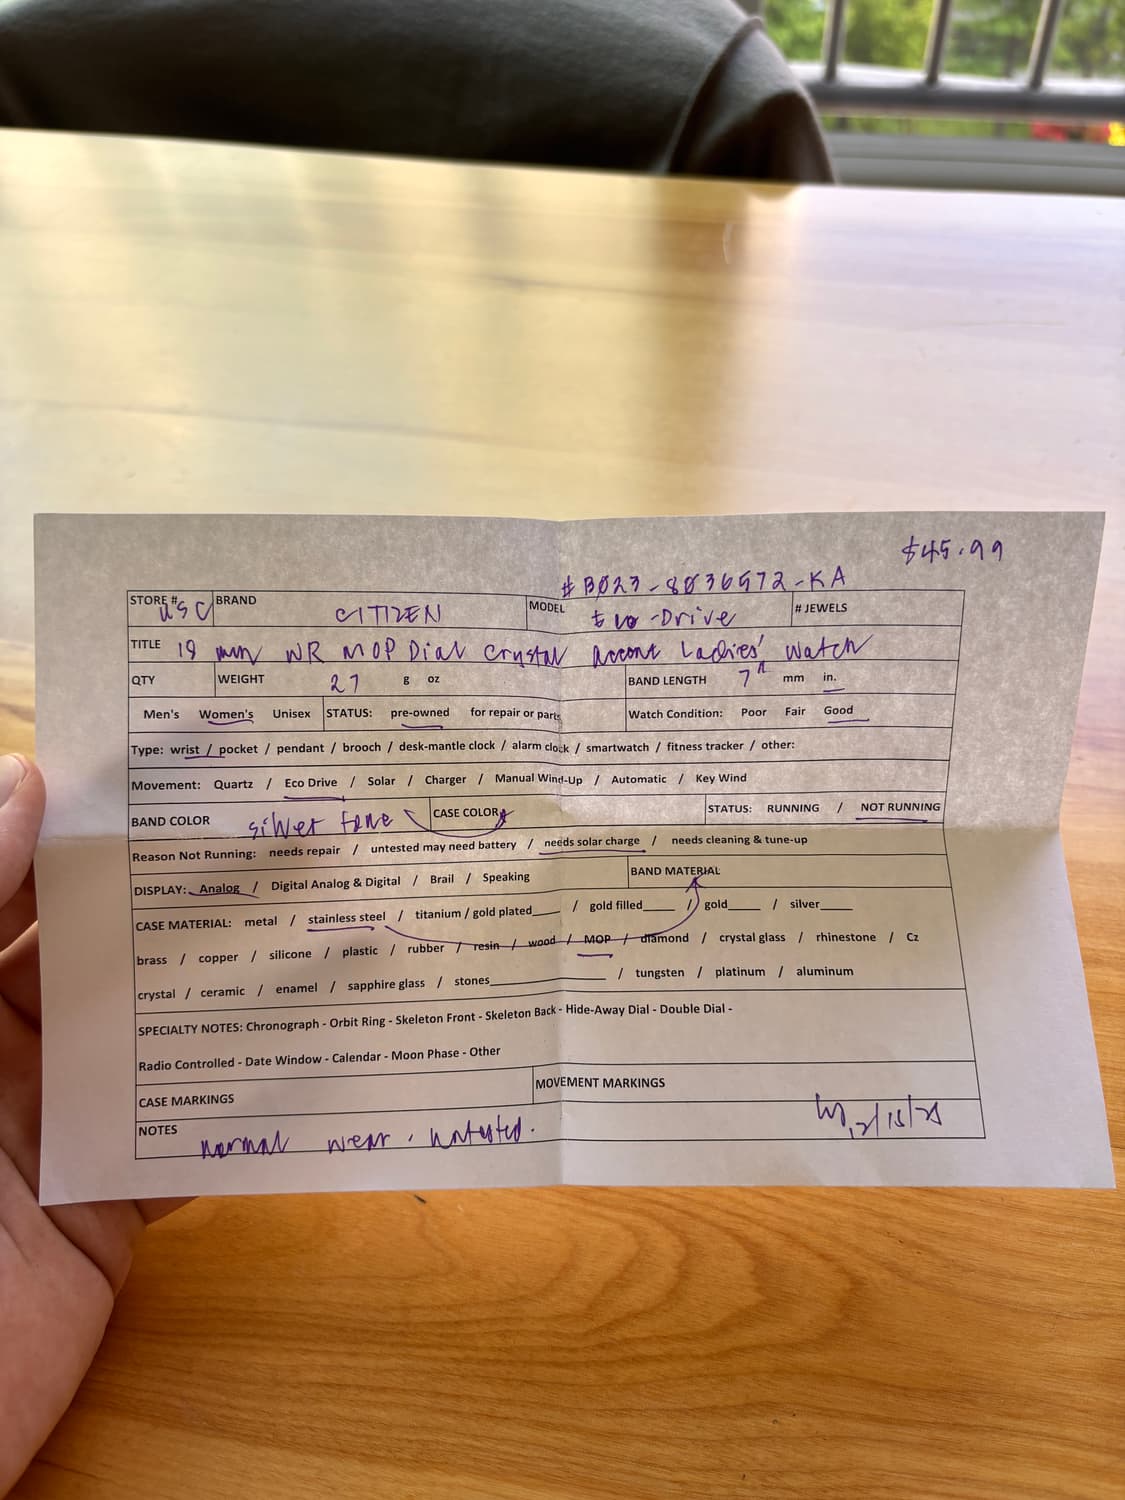 $45.99
# B023-8036572-KA
STORE # USC BRAND CITIZEN MODEL Eco-Drive # JEWELS
TITLE 19 mm WR MOP Dial Crystal Accent Ladies' Watch
QTY WEIGHT 27 g oz BAND LENGTH 7" mm in.
Men's Women's Unisex STATUS: pre-owned for repair or parts Watch Condition: Poor Fair Good
Type: wrist / pocket / pendant / brooch / desk-mantle clock / alarm clock / smartwatch / fitness tracker / other:
Movement: Quartz / Eco Drive / Solar / Charger / Manual Wind-Up / Automatic / Key Wind
BAND COLOR silver tone CASE COLOR STATUS: RUNNING / NOT RUNNING
Reason Not Running: needs repair / untested may need battery / needs solar charge / needs cleaning & tune-up
DISPLAY: Analog / Digital Analog & Digital / Brail / Speaking BAND MATERIAL
CASE MATERIAL: metal / stainless steel / titanium / gold plated____ / gold filled____ / gold____ / silver____
brass / copper / silicone / plastic / rubber / resin / wood / MOP / diamond / crystal glass / rhinestone / Cz
crystal / ceramic / enamel / sapphire glass / stones____ / tungsten / platinum / aluminum
SPECIALTY NOTES: Chronograph - Orbit Ring - Skeleton Front - Skeleton Back - Hide-Away Dial - Double Dial -
Radio Controlled - Date Window - Calendar - Moon Phase - Other
CASE MARKINGS MOVEMENT MARKINGS
NOTES normal wear. Untested. 12/15/25